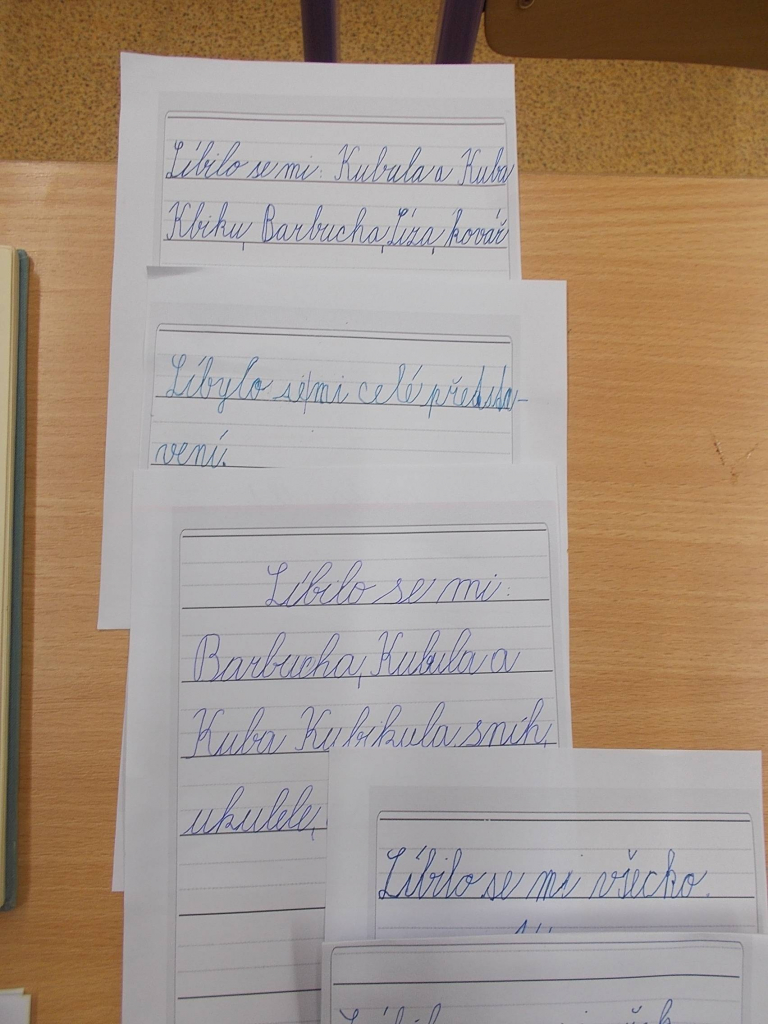 Líbilo se mi: Kubula a Kuba
Kbiku, Barbucha, Líza, kovář
Líbylo se mi celé představ-
vení.
Líbilo se mi:
Barbucha, Kubula a
Kuba Kubikula sníh,
ukulele,
Líbilo se mi všecko.